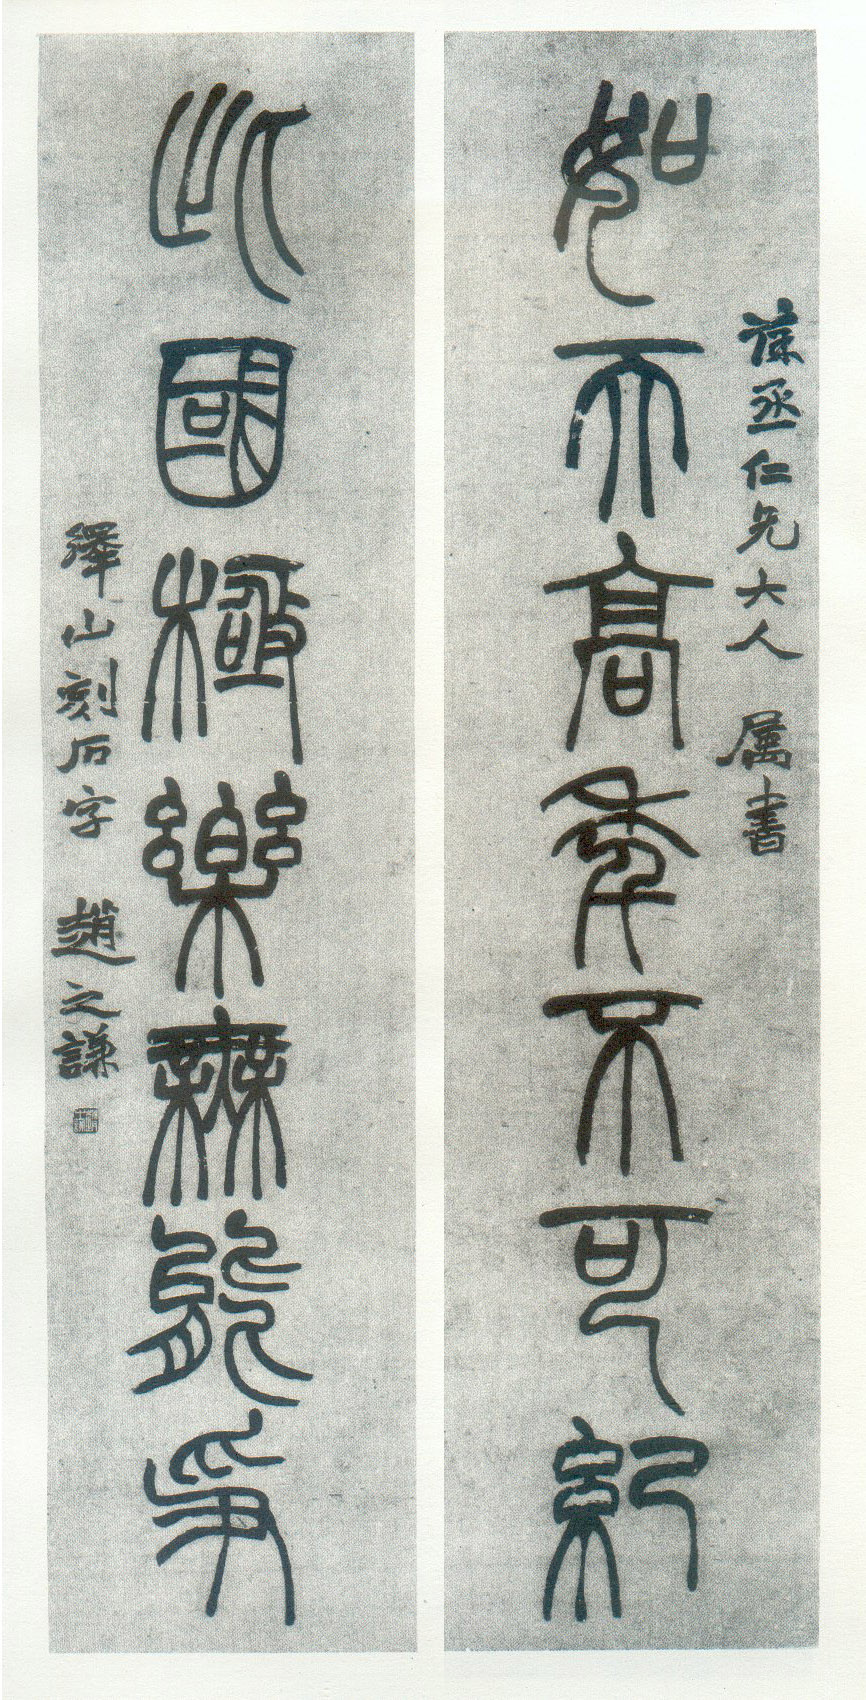 葆丞仁兄大人 属書
如天高年不可紀
此國極樂無能爭
繹山刻石字 趙之謙